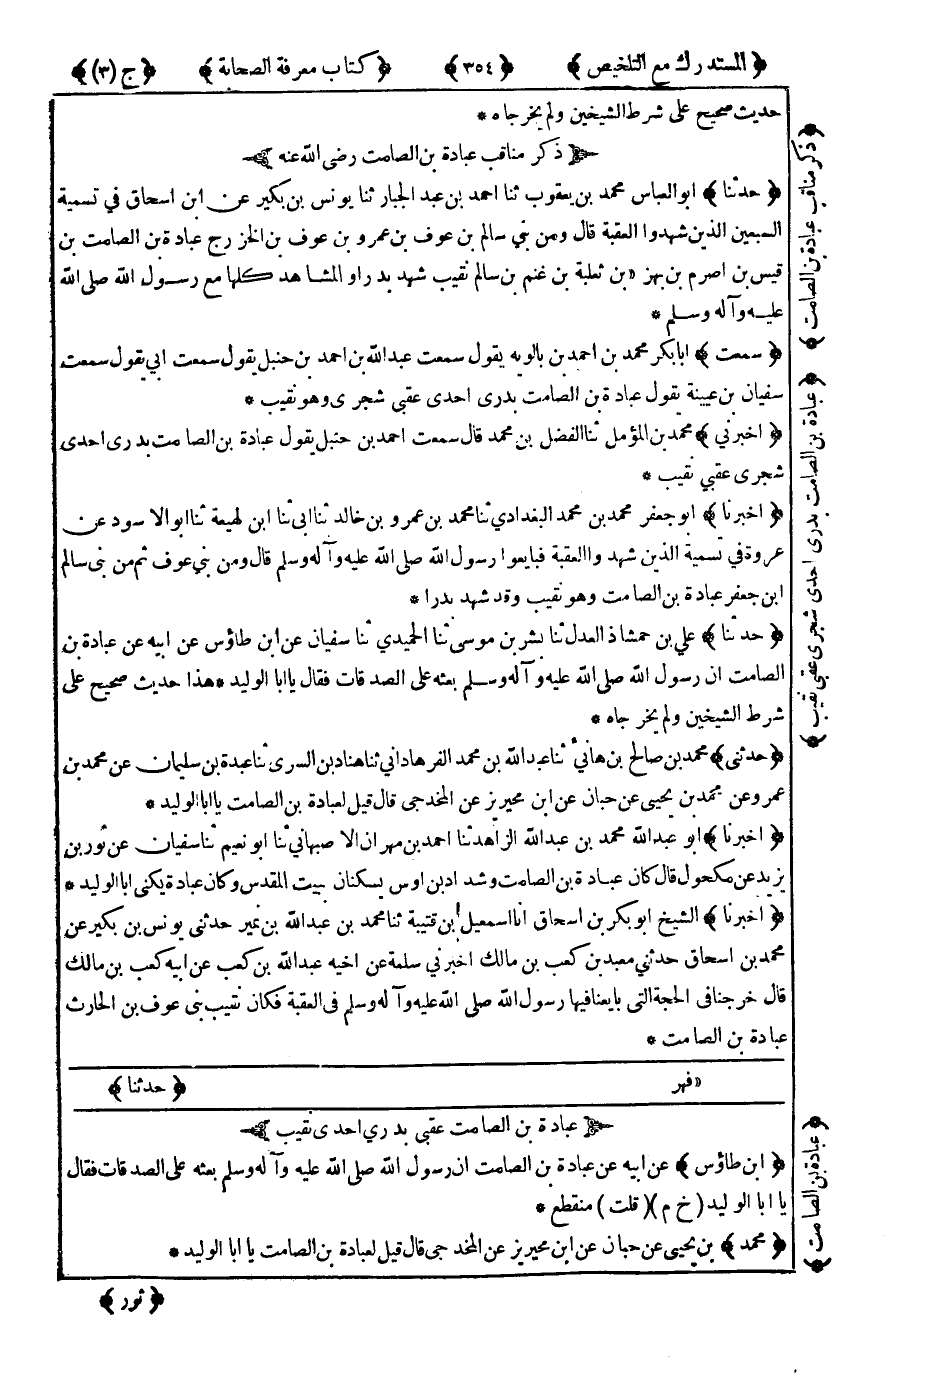 ﴿ المستدرك مع التلخيص ﴾ ﴿ ٣٥٤ ﴾ ﴿ كتاب معرفة الصحابة ﴾ ﴿ ج (٣) ﴾
حديث صحيح على شرط الشيخين ولم يخرجاه *
ذكر مناقب عبادة بن الصامت رضى الله عنه
﴿ حدثنا ﴾ ابو العباس محمد بن يعقوب ثنا احمد بن عبد الجبار ثنا يونس بن بكير عن ابن اسحاق في تسمية
السبعين الذين شهدوا العقبة قال ومن بني سالم بن عوف بن عمرو بن عوف بن الخزرج عبادة بن الصامت بن
قيس بن اصرم بن بهز « بن ثعلبة بن غنم بن سالم نقيب شهد بدرا والمشاهد كلها مع رسول الله صلى الله
عليه وآله وسلم *
﴿ سمعت ﴾ ابا بكر محمد بن احمد بن بالويه يقول سمعت عبد الله بن احمد بن حنبل يقول سمعت ابي يقول سمعت
سفيان بن عيينة يقول عبادة بن الصامت بدرى احدى عقبي شجرى وهو نقيب *
﴿ اخبرني ﴾ محمد بن المؤمل ثنا الفضل بن محمد قال سمعت احمد بن حنبل يقول عبادة بن الصامت بدرى احدى
شجرى عقبي نقيب *
﴿ اخبرنا ﴾ ابو جعفر محمد بن محمد البغدادي ثنا محمد بن عمرو بن خالد ثنا ابى ثنا ابن لهيعة ثنا ابو الاسود عن
عروة في تسمية الذين شهدوا العقبة فبايعوا رسول الله صلى الله عليه وآله وسلم قال ومن بني عوف ثم من بنى سالم
ابن جعفر عبادة بن الصامت وهو نقيب وقد شهد بدرا *
﴿ حدثنا ﴾ علي بن حمشاذ العدل ثنا بشر بن موسى ثنا الحميدي ثنا سفيان عن ابن طاؤس عن ابيه عن عبادة بن
الصامت ان رسول الله صلى الله عليه وآله وسلم بعثه على الصدقات فقال يا ابا الوليد * هذا حديث صحيح على
شرط الشيخين ولم يخرجاه *
﴿ حدثنى ﴾ محمد بن صالح بن هانئ ثنا عبد الله بن محمد الفرهاداني ثنا هناد بن السرى ثنا عبدة بن سليمان عن محمد بن
عمرو عن محمد بن يحيى عن حبان عن ابن محيريز عن المخدجى قال قيل لعبادة بن الصامت يا ابا الوليد *
﴿ اخبرنا ﴾ ابو عبد الله محمد بن عبد الله الزاهد ثنا احمد بن مهران الاصبهاني ثنا ابو نعيم ثنا سفيان عن ثور بن
يزيد عن مكحول قال كان عبادة بن الصامت وشداد بن اوس يسكنان بيت المقدس وكان عبادة يكنى ابا الوليد *
﴿ اخبرنا ﴾ الشيخ ابو بكر بن اسحاق انا اسمعيل ابن قتيبة ثنا محمد بن عبد الله بن نمير حدثنى يونس بن بكير عن
محمد بن اسحاق حدثني معبد بن كعب بن مالك اخبرني سلمة عن اخيه عبد الله بن كعب عن ابيه كعب بن مالك
قال خرجنا فى الحجة التى بايعنا فيها رسول الله صلى الله عليه وآله وسلم فى العقبة فكان نقيب بنى عوف بن الحارث
عبادة بن الصامت *
« فهر ﴿ حدثنا ﴾
عبادة بن الصامت عقبى بدري احدى نقيب
﴿ ابن طاؤس ﴾ عن ابيه عن عبادة بن الصامت ان رسول الله صلى الله عليه وآله وسلم بعثه على الصدقات فقال
يا ابا الوليد ( خ م ) ( قلت ) منقطع *
﴿ محمد ﴾ بن يحيى عن حبان عن ابن محيريز عن المخدجى قال قيل لعبادة بن الصامت يا ابا الوليد *
﴿ ثور ﴾
﴿ ذكر مناقب عبادة بن الصامت ﴾
﴿ عبادة بن الصامت بدرى احدى شجرى عقبي نقيب ﴾
﴿ عبادة بن الصامت ﴾